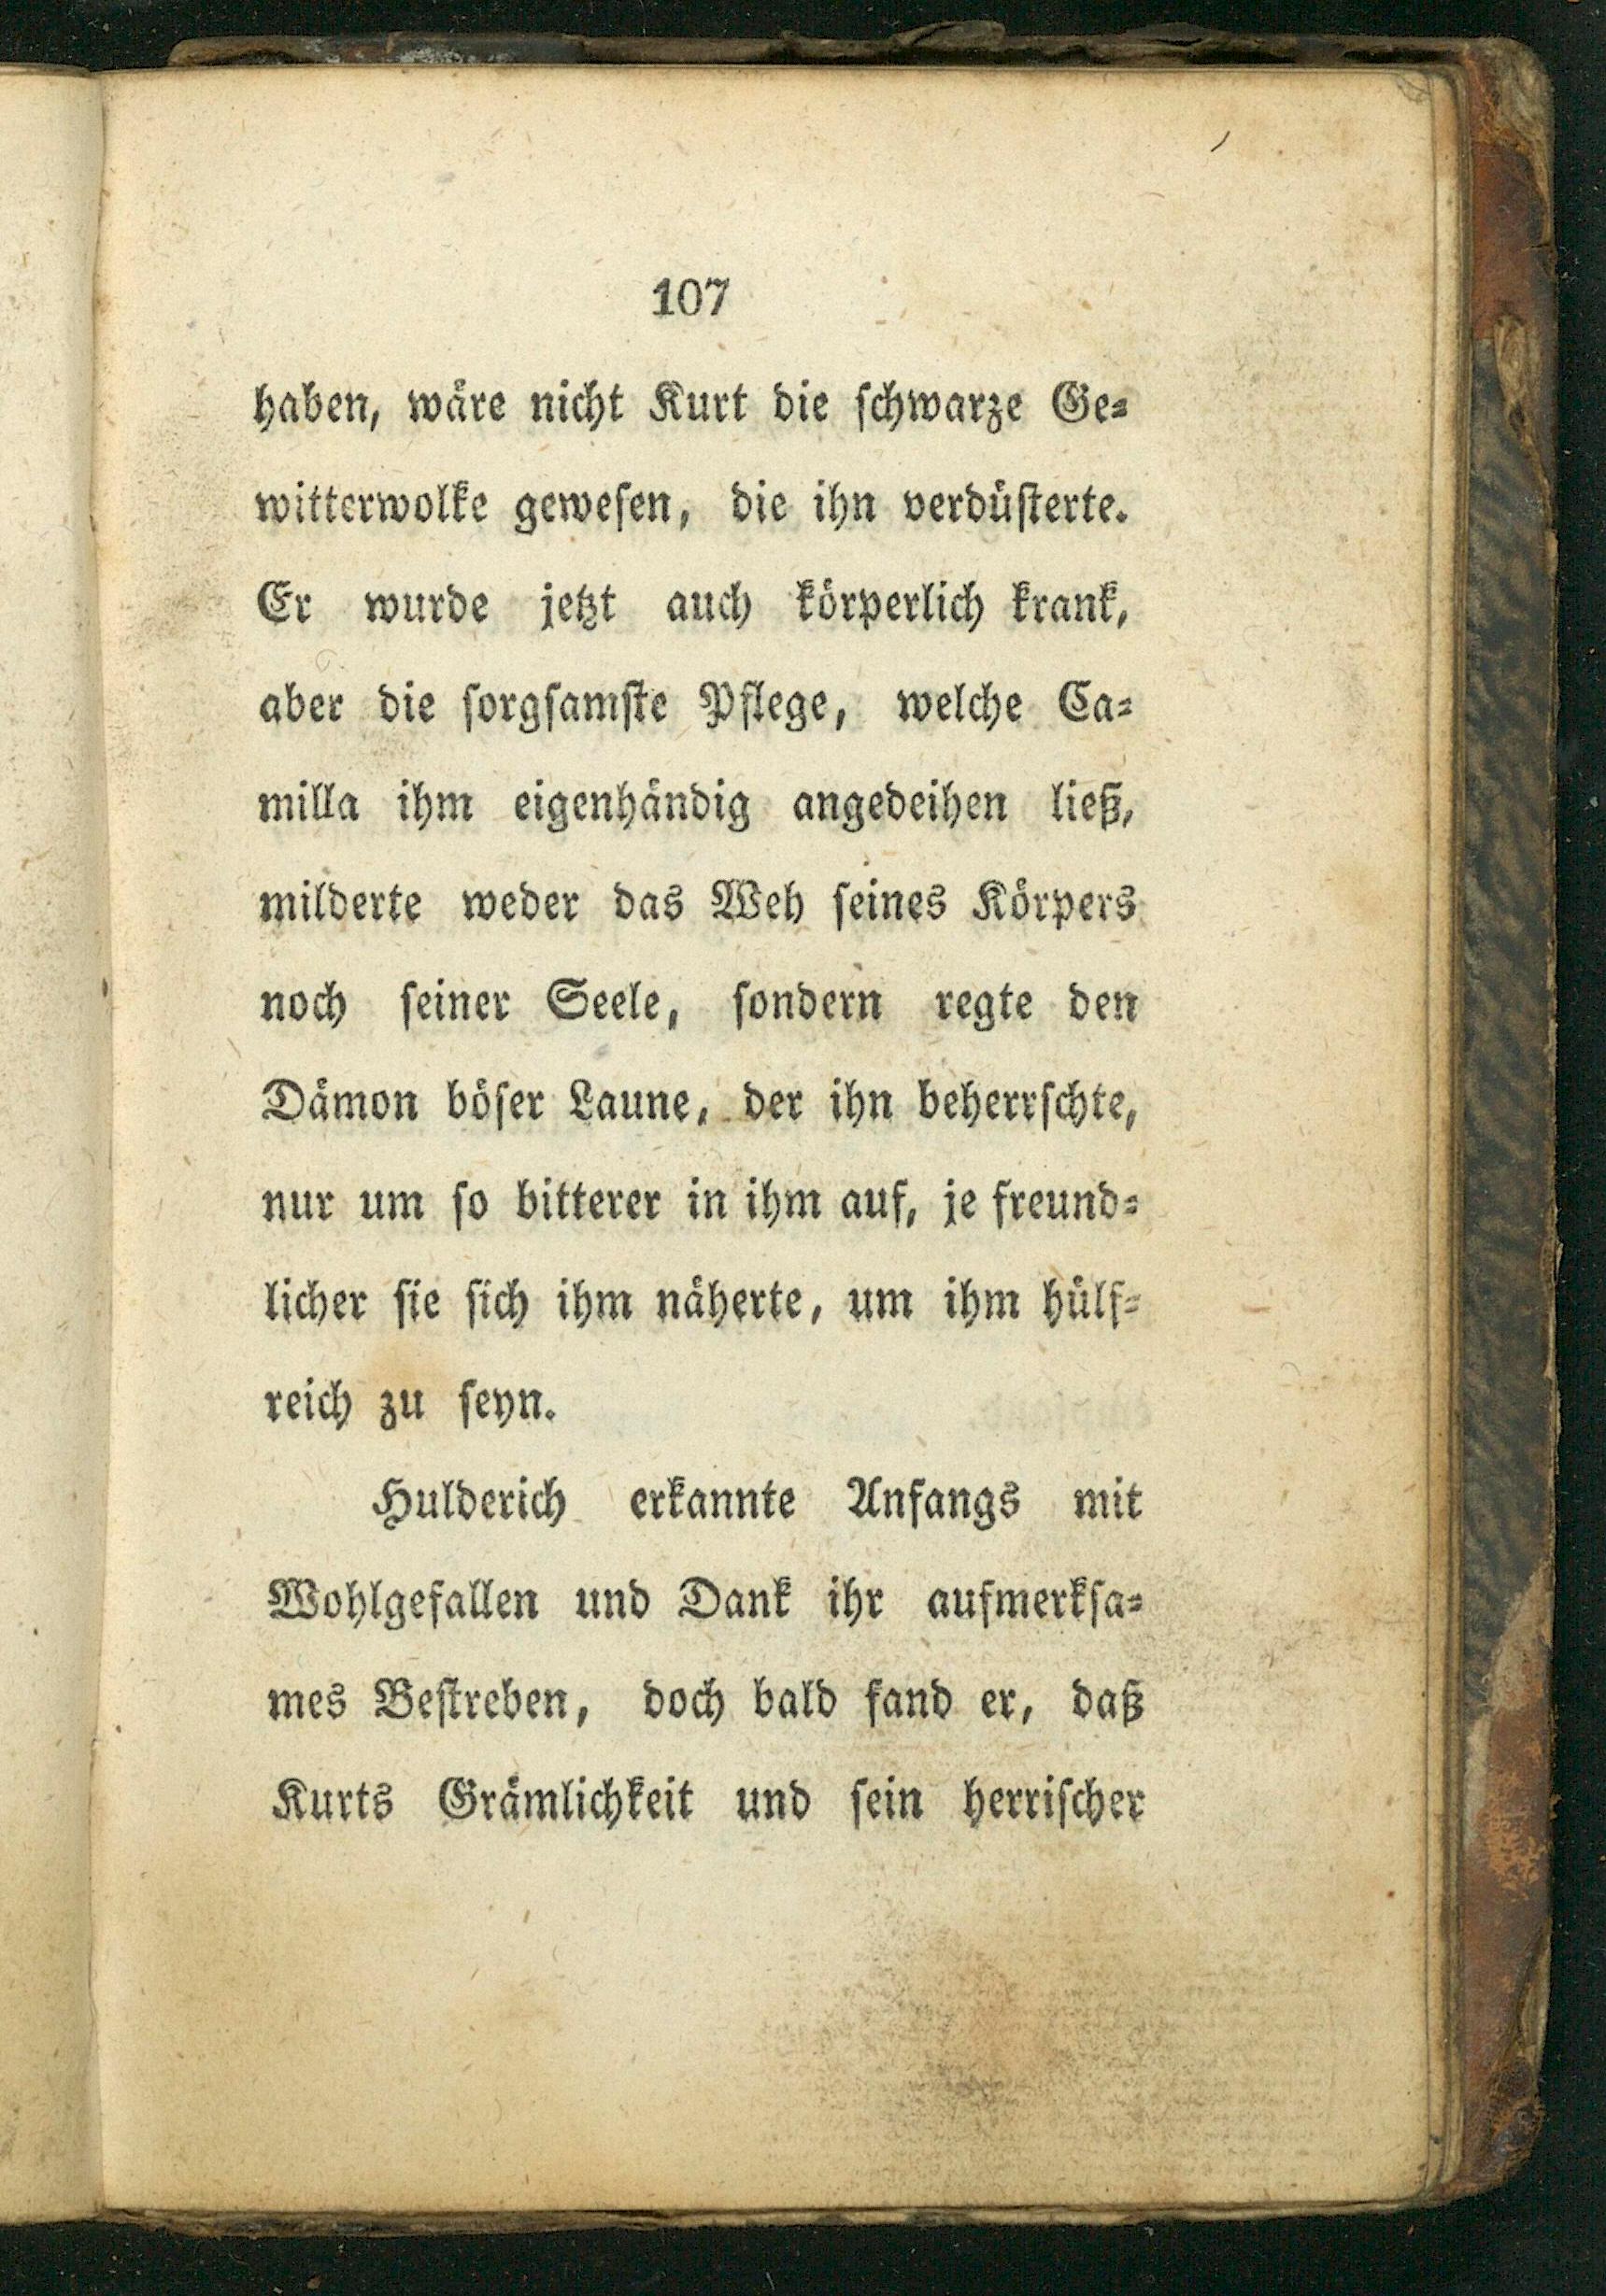 107
haben, wäre nicht Kurt die schwarze Ge-
witterwolke gewesen, die ihn verdüsterte.
Er wurde jetzt auch körperlich krank,
aber die sorgsamste Pflege, welche Ca-
milla ihm eigenhändig angedeihen ließ,
milderte weder das Weh seines Körpers
noch seiner Seele, sondern regte den
Dämon böser Laune, der ihn beherrschte,
nur um so bitterer in ihm auf, je freund-
licher sie sich ihm näherte, um ihm hülf-
reich zu seyn.
Hulderich erkannte Anfangs mit
Wohlgefallen und Dank ihr aufmerksa-
mes Bestreben, doch bald fand er, daß
Kurts Grämlichkeit und sein herrischer